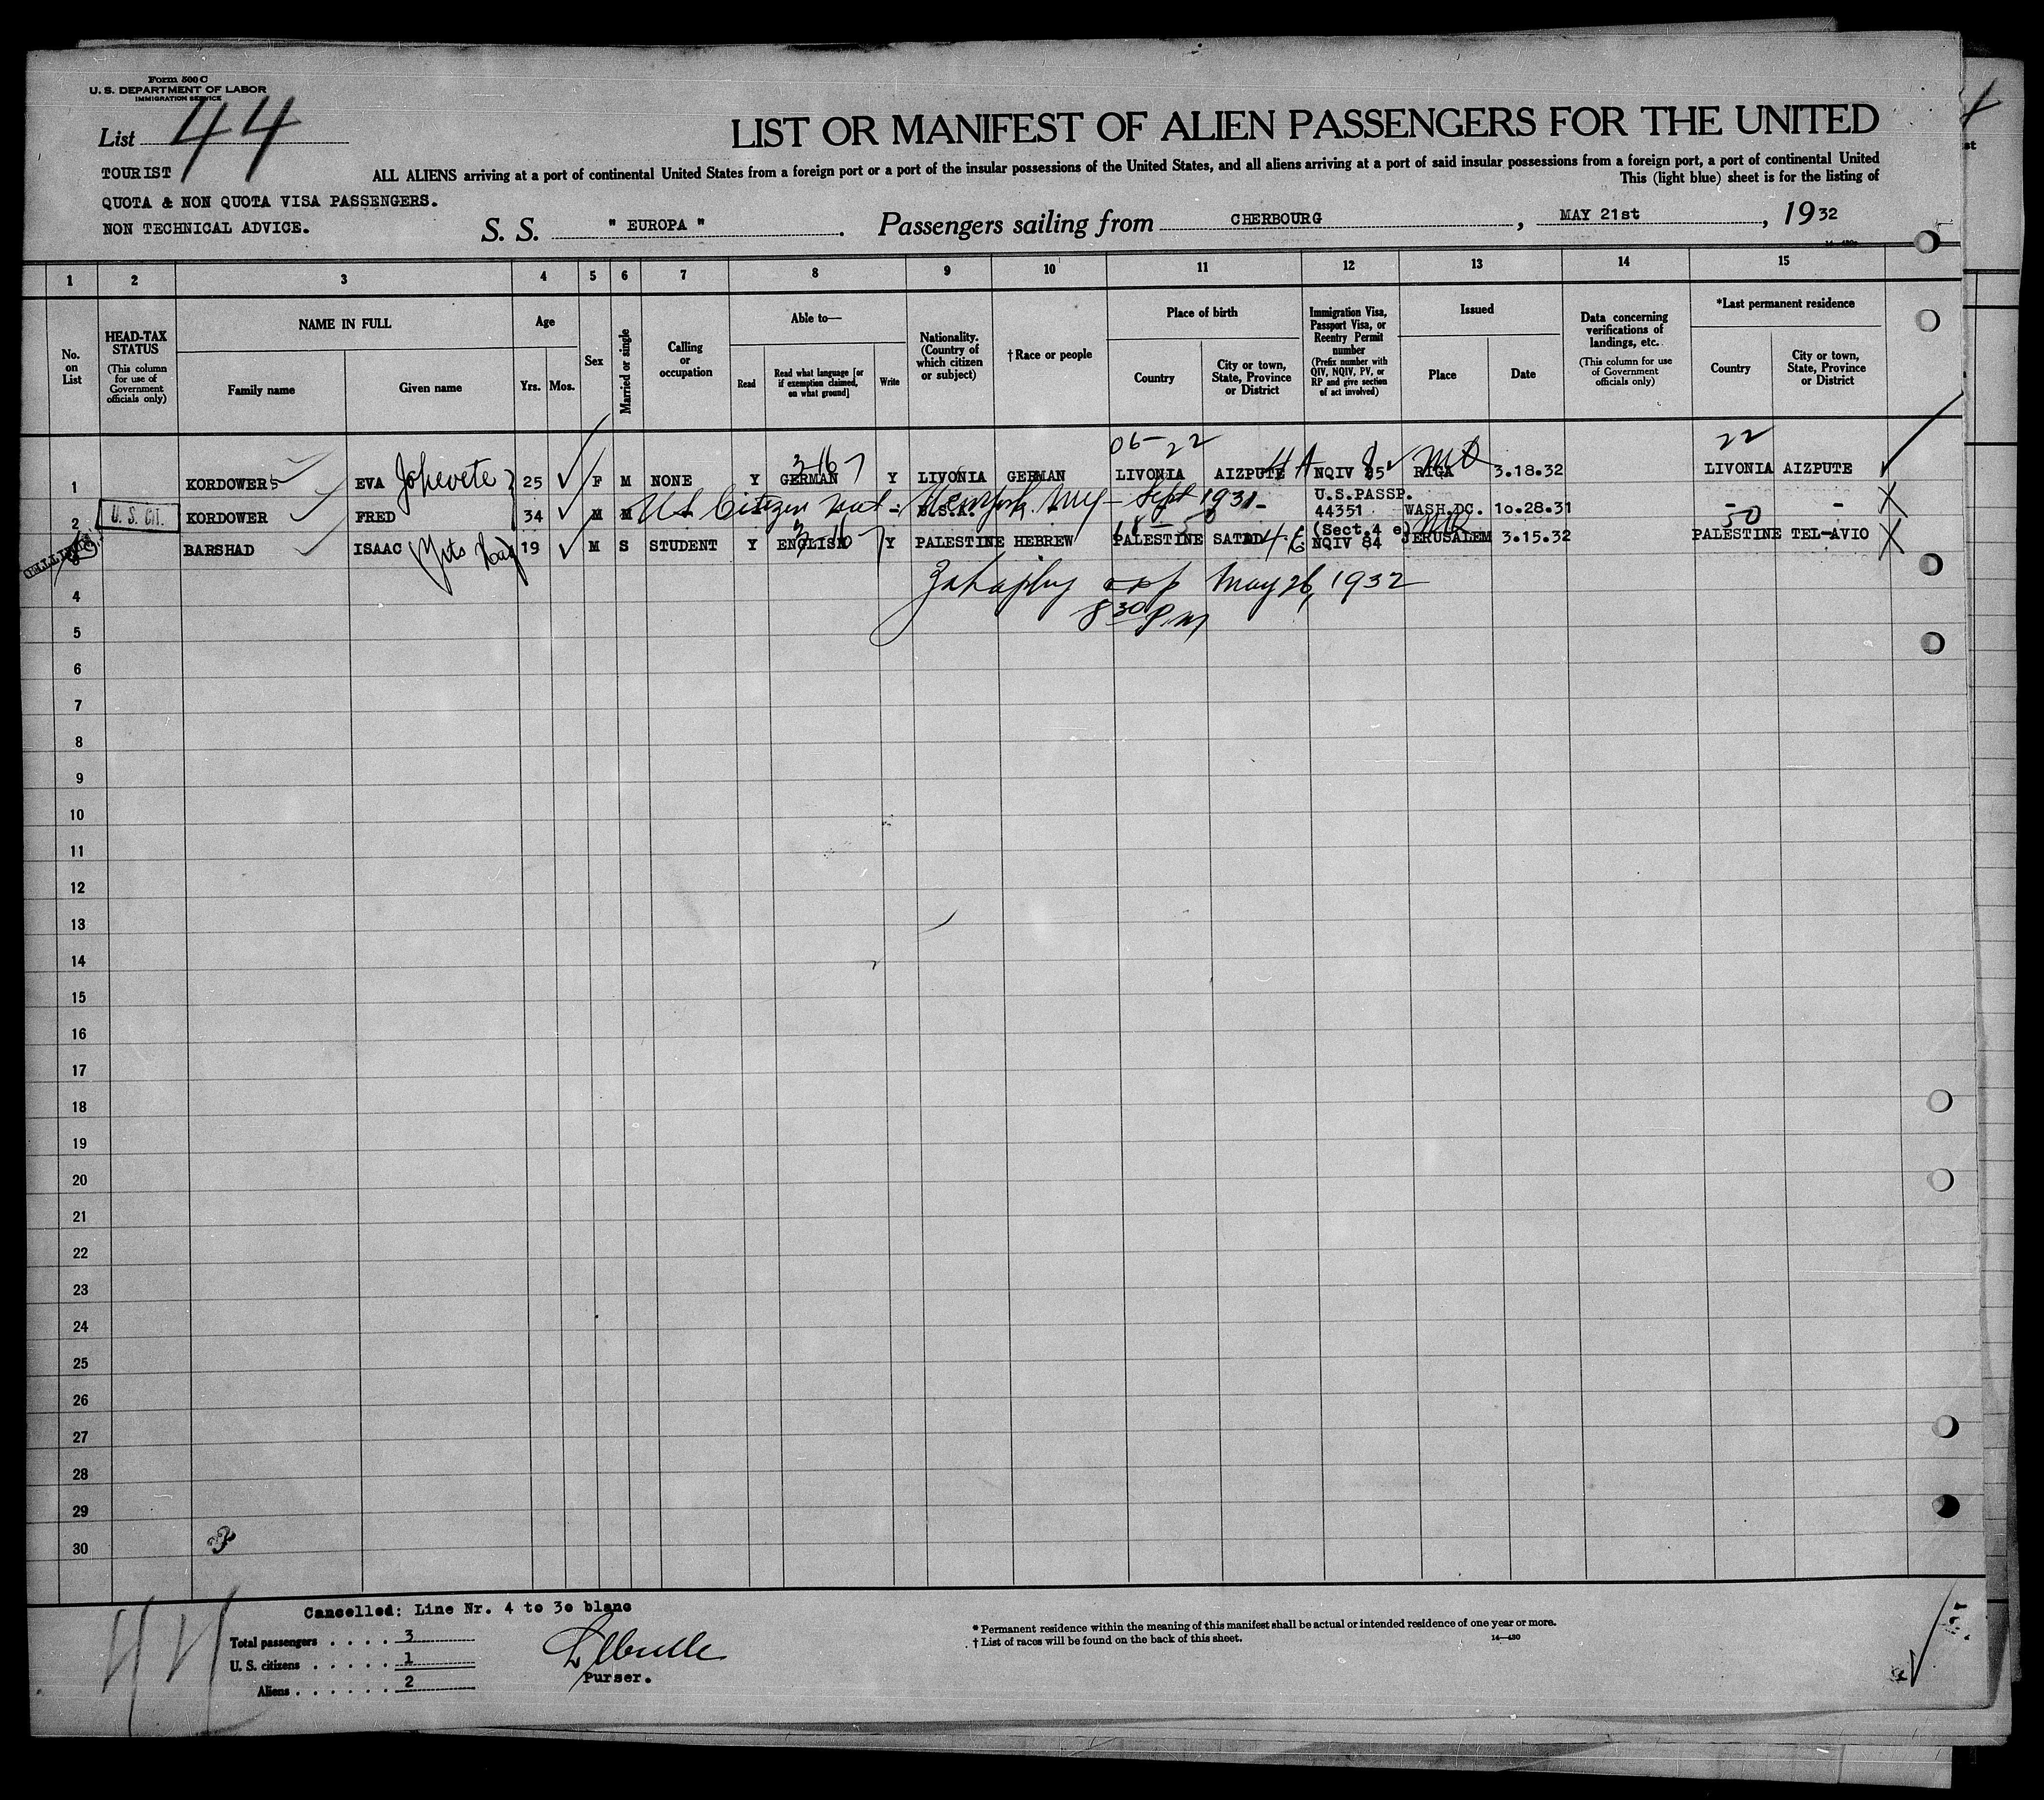 Form 500 C
U. S. DEPARTMENT OF LABOR
IMMIGRATION SERVICE
List 44
LIST OR MANIFEST OF ALIEN PASSENGERS FOR THE UNITED
TOURIST
ALL ALIENS arriving at a port of continental United States from a foreign port or a port of the insular possessions of the United States, and all aliens arriving at a port of said insular possessions from a foreign port, a port of continental United
This (light blue) sheet is for the listing of
QUOTA & NON QUOTA VISA PASSENGERS.
NON TECHNICAL ADVICE.
S. S. " EUROPA ". Passengers sailing from CHERBOURG, MAY 21st, 1932
1 2 3 4 5 6 7 8 9 10 11 12 13 14 15
No. on List
HEAD-TAX STATUS (This column for use of Government officials only)
NAME IN FULL
Family name
Given name
Age
Yrs. Mos.
Sex
Married or single
Calling or occupation
Able to—
Read
Read what language [or if exemption claimed, on what ground]
Write
Nationality. (Country of which citizen or subject)
† Race or people
Place of birth
Country
City or town, State, Province or District
Immigration Visa, Passport Visa, or Reentry Permit number (Prefix number with QIV, NQIV, PV, or RP and give section of act involved)
Issued
Place
Date
Data concerning verifications of landings, etc. (This column for use of Government officials only)
*Last permanent residence
Country
City or town, State, Province or District
06-22 22
1 KORDOWER EVA 25 F M NONE Y GERMAN Y LIVONIA GERMAN LIVONIA AIZPUTE NQIV 85 RIGA 3.18.32 LIVONIA AIZPUTE
U.S.PASSP.
2 U. S. CIT. KORDOWER FRED 34 M M U.S. Citizen - U.S.A. New York, N.Y. - Sept 1931 - 44351 WASH.DC. 10.28.31 - -
50
(Sect.4 e)
BARSHAD ISAAC 19 M S STUDENT Y ENGLISH Y PALESTINE HEBREW PALESTINE NQIV 84 JERUSALEM 3.15.32 PALESTINE TEL-AVIO
May 26, 1932
8 30 P.M
4
5
6
7
8
9
10
11
12
13
14
15
16
17
18
19
20
21
22
23
24
25
26
27
28
29
30
3
44
Cancelled: Line Nr. 4 to 30 blanc
Total passengers . . . . 3
U. S. citizens . . . . . 1
Aliens . . . . . . 2
Purser.
* Permanent residence within the meaning of this manifest shall be actual or intended residence of one year or more.
† List of races will be found on the back of this sheet.
14—430